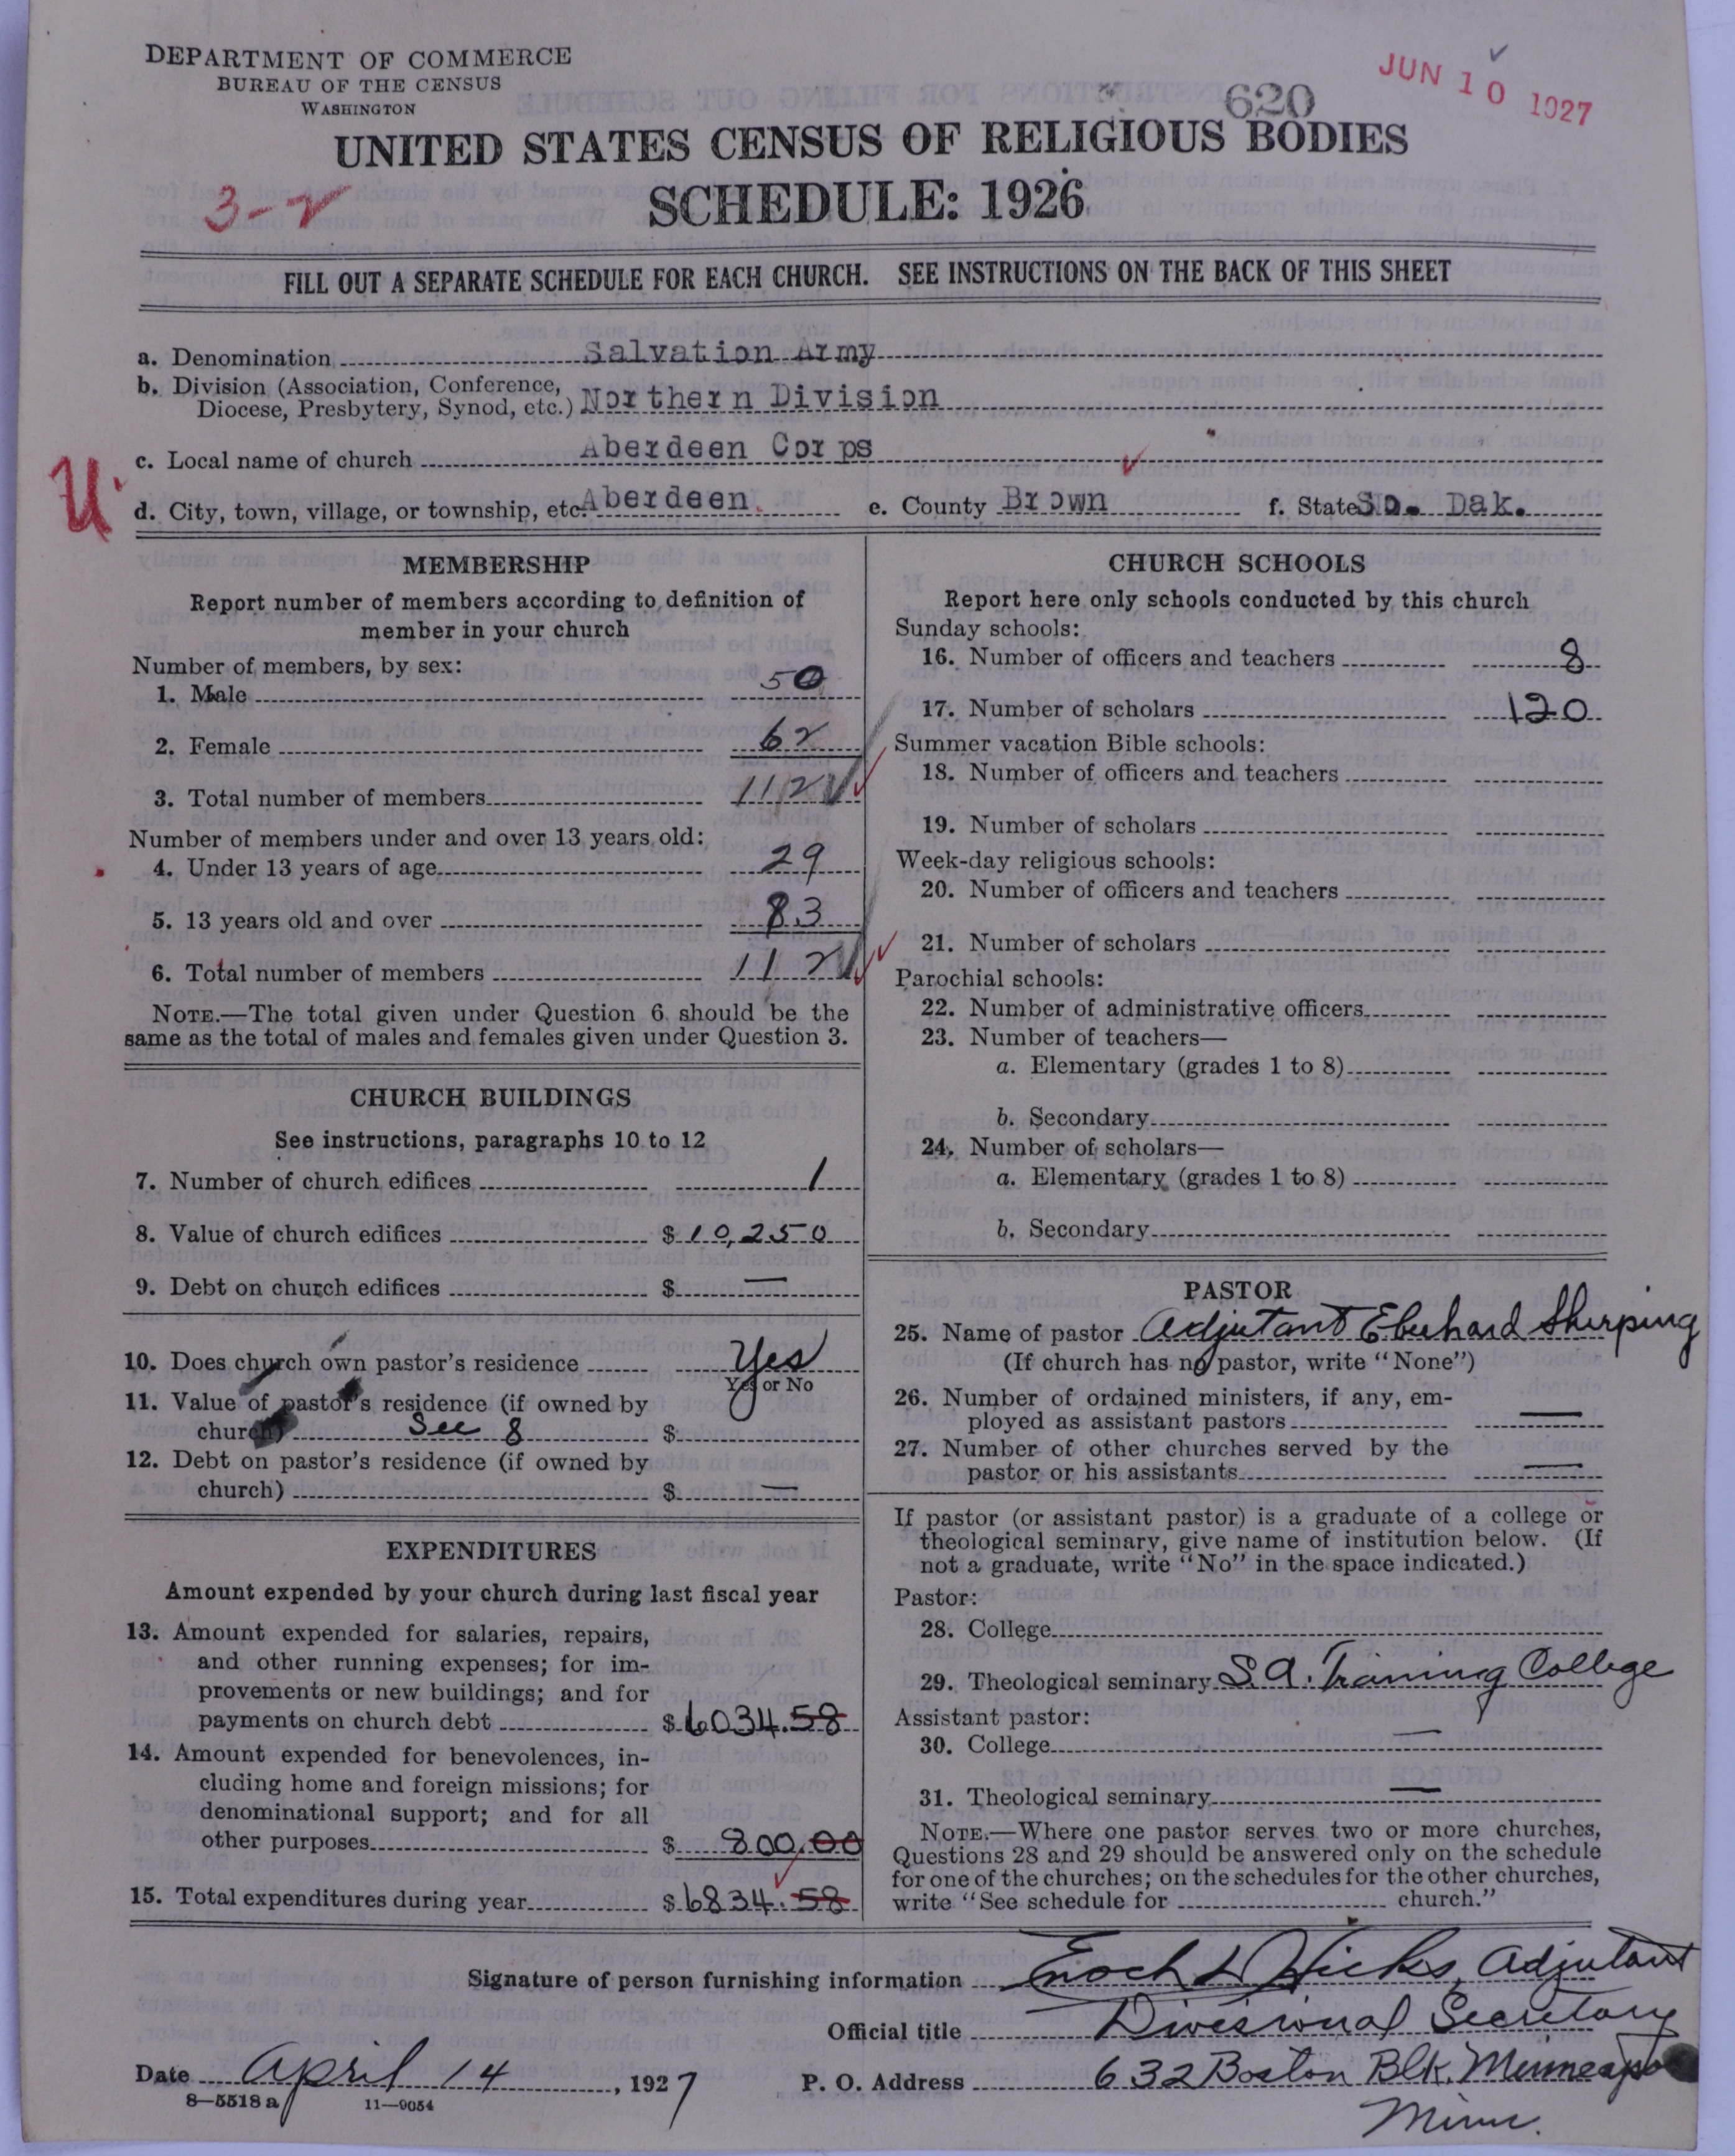 DEPARTMENT OF COMMERCE
BUREAU OF THE CENSUS
WASHINGTON
620
JUN 10 1927
UNITED STATES CENSUS OF RELIGIOUS BODIES
SCHEDULE: 1926
3-2
FILL OUT A SEPARATE SCHEDULE FOR EACH CHURCH. SEE INSTRUCTIONS ON THE BACK OF THIS SHEET
a. Denomination Salvation Army
b. Division (Association, Conference,
Diocese, Presbytery, Synod, etc.) Northern Division
c. Local name of church Aberdeen Corps
U
d. City, town, village, or township, etc. Aberdeen. e. County Brown f. State So. Dak.
MEMBERSHIP
Report number of members according to definition of
member in your church
Number of members, by sex:
1. Male 50
2. Female 62
3. Total number of members 112
Number of members under and over 13 years old:
4. Under 13 years of age 29
5. 13 years old and over 83
6. Total number of members 112
NOTE.—The total given under Question 6 should be the
same as the total of males and females given under Question 3.
CHURCH BUILDINGS
See instructions, paragraphs 10 to 12
7. Number of church edifices 1
8. Value of church edifices $ 10,250
9. Debt on church edifices $ —
10. Does church own pastor's residence Yes
Yes or No
11. Value of pastor's residence (if owned by
church) See 8 $
12. Debt on pastor's residence (if owned by
church) $ —
EXPENDITURES
Amount expended by your church during last fiscal year
13. Amount expended for salaries, repairs,
and other running expenses; for im-
provements or new buildings; and for
payments on church debt $ 6034.58
14. Amount expended for benevolences, in-
cluding home and foreign missions; for
denominational support; and for all
other purposes $ 800.00
15. Total expenditures during year $ 6834.58
CHURCH SCHOOLS
Report here only schools conducted by this church
Sunday schools:
16. Number of officers and teachers 8
17. Number of scholars 120
Summer vacation Bible schools:
18. Number of officers and teachers
19. Number of scholars
Week-day religious schools:
20. Number of officers and teachers
21. Number of scholars
Parochial schools:
22. Number of administrative officers
23. Number of teachers—
a. Elementary (grades 1 to 8)
b. Secondary
24. Number of scholars—
a. Elementary (grades 1 to 8)
b. Secondary
PASTOR
25. Name of pastor Adjutant Eberhard Sherping
(If church has no pastor, write "None")
26. Number of ordained ministers, if any, em-
ployed as assistant pastors —
27. Number of other churches served by the
pastor or his assistants —
If pastor (or assistant pastor) is a graduate of a college or
theological seminary, give name of institution below. (If
not a graduate, write "No" in the space indicated.)
Pastor:
28. College
29. Theological seminary S.A. Training College
Assistant pastor:
30. College —
31. Theological seminary —
NOTE.—Where one pastor serves two or more churches,
Questions 28 and 29 should be answered only on the schedule
for one of the churches; on the schedules for the other churches,
write "See schedule for church."
Signature of person furnishing information Enoch L Hicks, Adjutant
Official title Divisional Secretary
Date April 14, 1927 P. O. Address 632 Boston Blk. Minneapo
Minn.
8—5518 a 11—9054